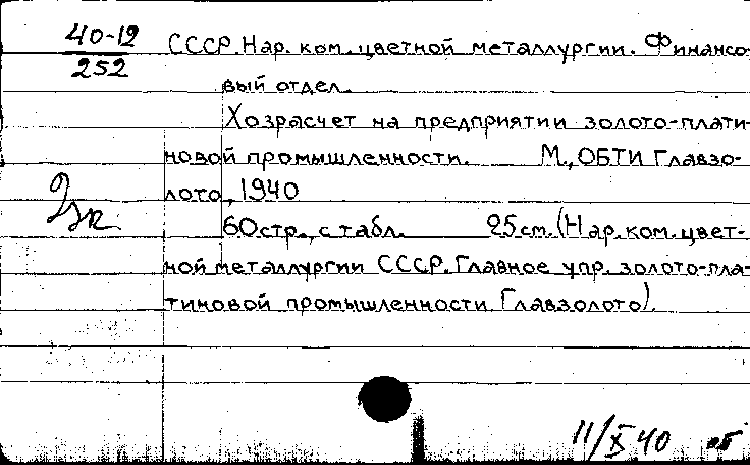 40-12
252
СССР. Нар. ком. цветной металлургии. Финансо-
вый отдел.
Хозрасчет на предприятии золото-плати-
новой промышленности. М., ОБТИ Главзо-
лото, 1940
60 стр., с табл. 25 см. (Нар. ком. цвет-
ной металлургии СССР. Главное упр. золото-пла-
тиновой промышленности. Главзолото).
11/X 40